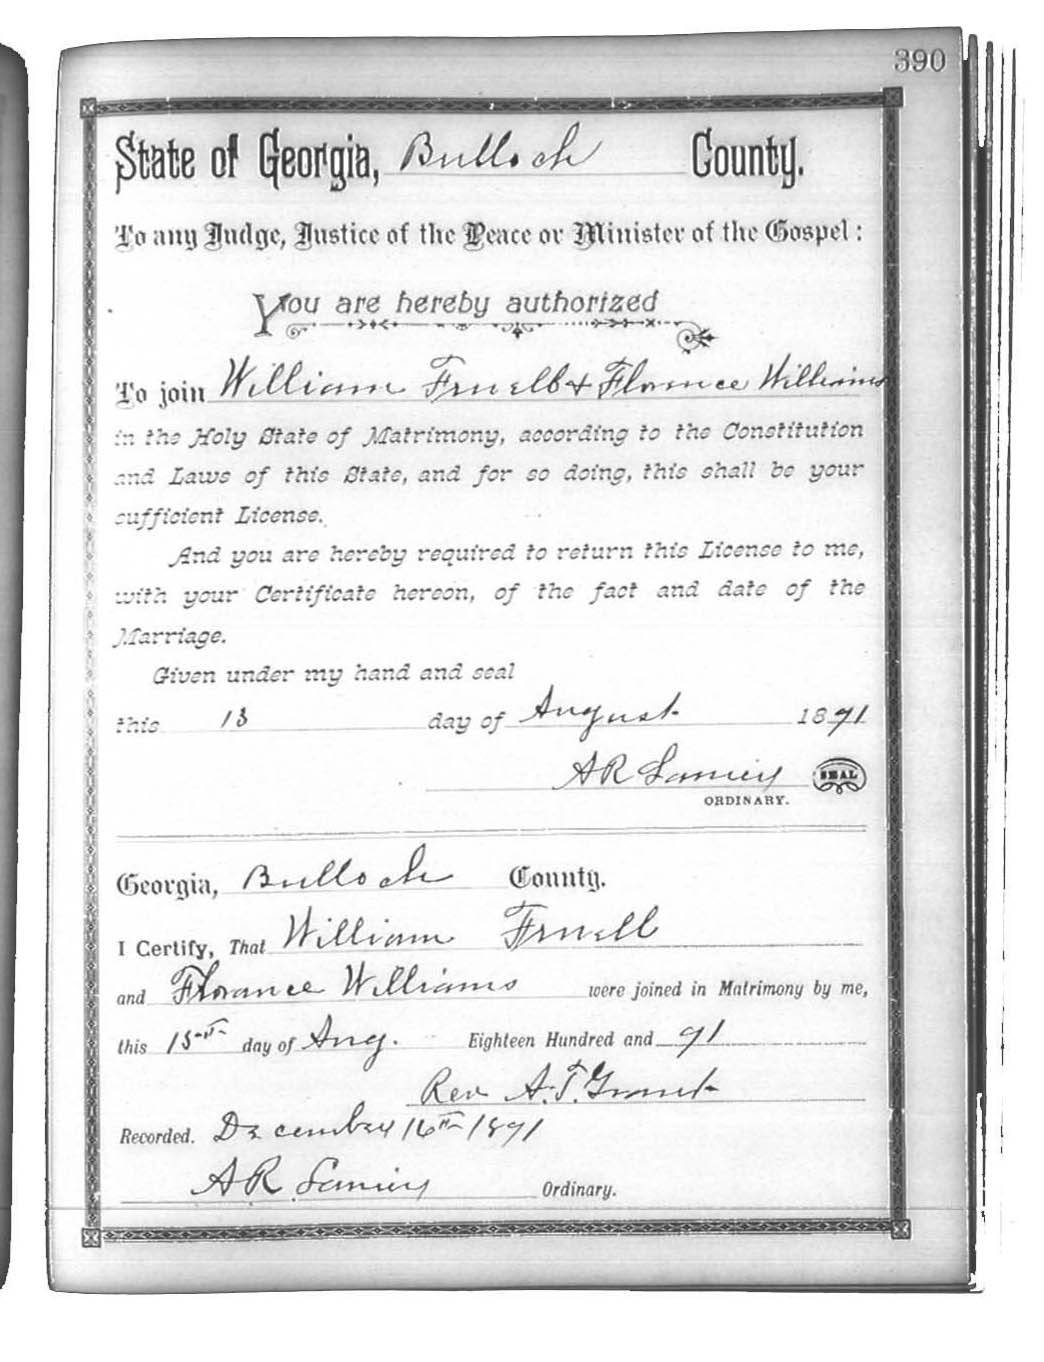 390
State of Georgia, Bulloch County.
To any Judge, Justice of the Peace or Minister of the Gospel:
You are hereby authorized
To join William & Florence Williams
in the Holy State of Matrimony, according to the Constitution
and Laws of this State, and for so doing, this shall be your
sufficient License.
And you are hereby required to return this License to me,
with your Certificate hereon, of the fact and date of the
Marriage.
Given under my hand and seal
this 13 day of August 1891
A R SEAL
ORDINARY.
Georgia, Bulloch County.
I Certify, That William
and Florance Williams were joined in Matrimony by me,
this day of Aug. Eighteen Hundred and 91
Rev A. T. Grant
Recorded. December 16th 1891
A R Ordinary.